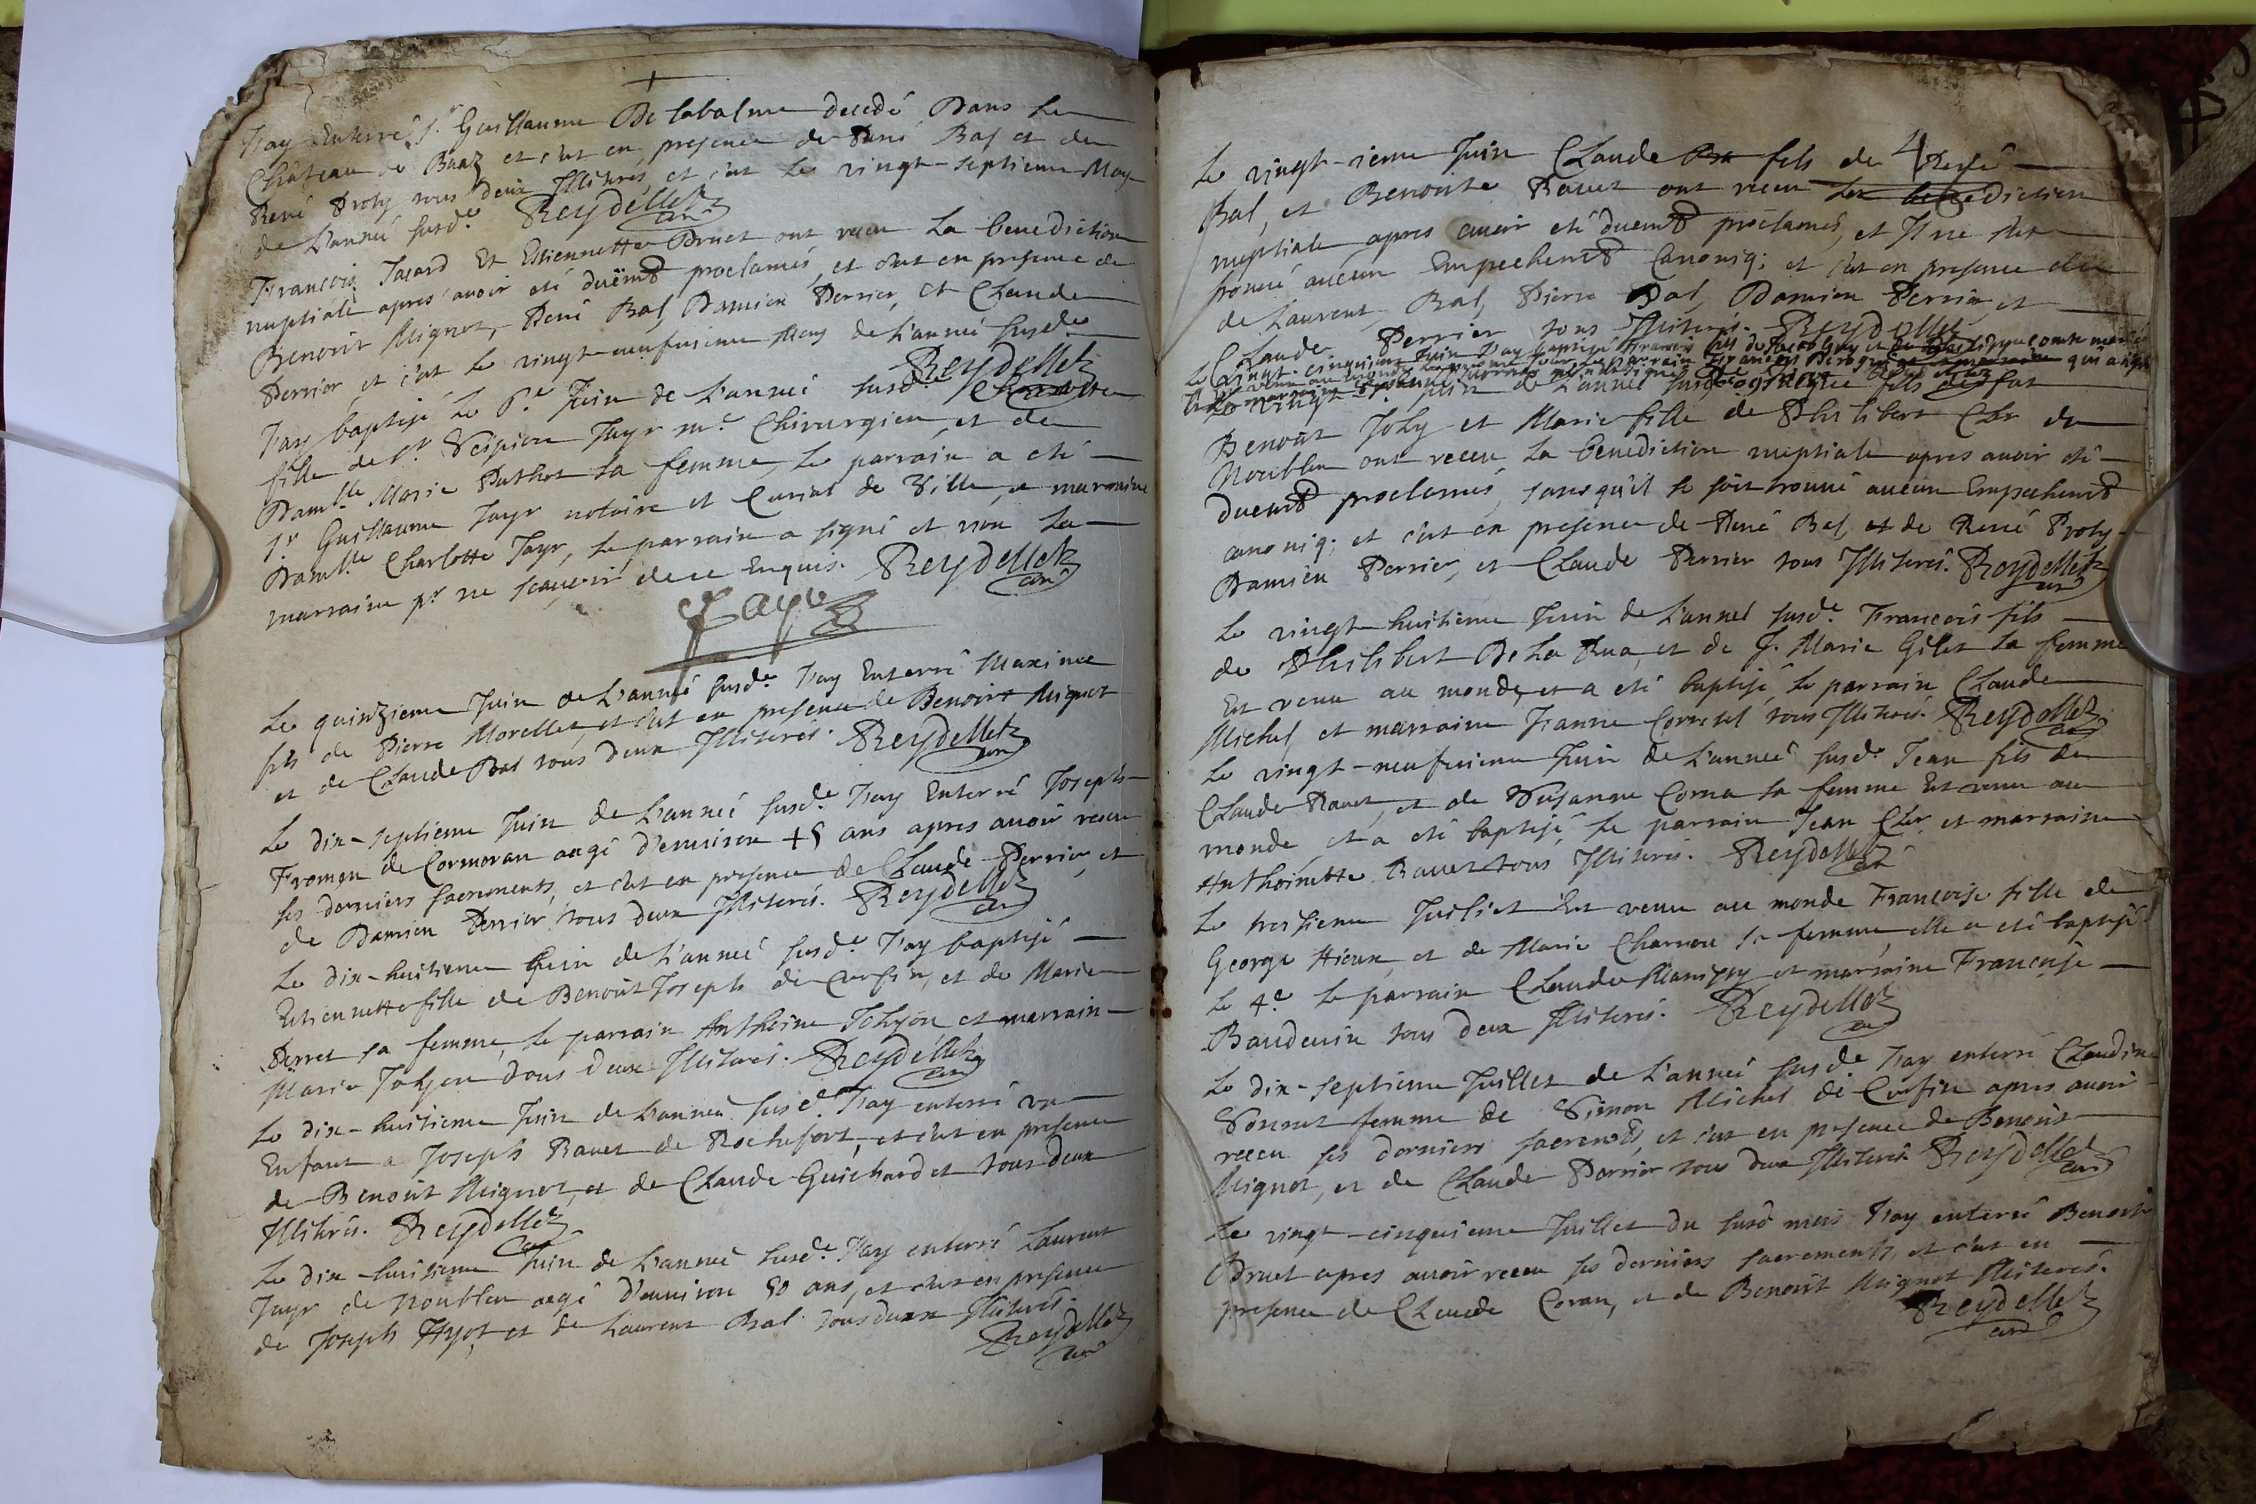 J'ay Enterré Sr. Guillaume De labalme decedé Dans Le
Château de Buaz et c'est en presence de René Bal et de
René Proty tous deux Illitérés, et c'est Le vingt-septieme May
de L'année susde. Reydellet curé
François Jacard Et Estiennette Druet ont receu La benediction
nuptiale apres avoir eté duëmt proclamés, et c'est en presence de
Benoit Mignot, René Bal, Damien Perrier, et Claude
Perrier, et c'est Le vingt-neufvieme May de L'année susde
Reydellet
J'ay baptisé Le 6e Juin de L'année susde
fille de Sr. Vespien Jayr me. Chirurgien, et de
Damlle Marie Puthot sa femme, Le parrain a eté
Sr Guillaume Jayr notaire et Curial de Ville, et marraine
Damlle Charlotte Jayr, Le parrain a signé et non La
marraine pr ne sçavoir de ce Enquis. Reydellet curé
Jayr
Le quinzieme Juin de L'année susde. J'ay Enterré Maxime
fils de Pierre Morellet, et c'est en presence de Benoit Mignot
et de Claude Bal tous deux Illiterés. Reydellet curé
Le dix-septieme Juin de L'année susde. J'ay Enterré Joseph
Froman de Cormoran aagé d'environ 45 ans apres avoir receu
ses derniers sacrements, et c'est en presence de Claude Perrier, et
de Damien Perrier tous deux Illiterés. Reydellet curé
Le dix-huitieme Juin de L'année susde. J'ay baptisé
Estiennette fille de Benoit Joseph de Cuefin, et de Marie
Perret sa femme, Le parrain Anthoine Johyon et marraine
Marie Johyon tous deux Illiterés. Reydellet curé
Le dix-huitieme Juin de L'année susde. J'ay enterré un
Enfant a Joseph Bavet de Rochefort, et c'est en presence
de Benoit Mignot, et de Claude Guichardet tous deux
Illitérés. Reydellet curé
Le dix-huitieme Juin de L'année susde. J'ay enterré Laurent
Jayr de Noublen aagé d'environ 50 ans, et c'est en presence
de Joseph Hyot, et de Laurent Bal tous deux Illiterés.
Reydellet curé
Le vingt-ieme Juin Claude fils de René
Bal, et Benoite Bavet ont receu La benediction
nuptiale apres avoir eté duemt proclamés, et Il ne s'est
trouvé aucun Empechemt Canoniq; et c'est en presence
de Laurent Bal, Pierre Bal, Damien Perrier, et
Claude Perrier tous Illiterés. Reydellet
Le vingt-cinquieme Juin J'ay baptisé François fils de
Le vingt Juin de L'année susde fils
Benoit Johy et Marie fille de Philibert Cler de
Noublen ont receu La benediction nuptiale apres avoir eté
duemt proclamés, sans qu'il se soit trouvé aucun Empechemt
canoniq; et c'est en presence de René Bal, et de René Proty
Damien Perrier, et Claude Perrier tous Illiterés. Reydellet curé
Le vingt-huitieme Juin de L'année susde. François fils
de Philibert De La Rua, et de J. Marie Gilet sa femme
Est venu au monde, et a eté baptisé, Le parrain Claude
Michel, et marraine Jeanne tous Illiterés. Reydellet curé
Le vingt-neufvieme Juin de L'année susde Jean fils de
Claude Ravet, et de Susanne Corna sa femme Est venu au
monde, et a eté baptisé, Le parrain Jean Cler et marraine
Anthoinette Bavet tous Illiterés. Reydellet curé
Le troisieme Juillet Est venu au monde Françoise fille de
George Hieux, et de Marie Charron sa femme, elle a eté baptisé
Le 4e Le parrain Claude et marraine Françoise
Baudevin tous deux Illiterés. Reydellet curé
Le dix-septieme Juillet de L'année susde J'ay enterré Claudine
femme de Simon Michel de Cuefin apres avoir
receu ses derniers sacremts, et c'est en presence de Benoit
Mignot, et de Claude Perrier tous deux Illiterés Reydellet curé
Le vingt-cinquieme Juillet du susd mois J'ay enterré Benoit
Druet apres avoir receu ses derniers sacrements, et c'est en
presence de Claude Coran, et de Benoit Mignot Illiterés.
Reydellet curé